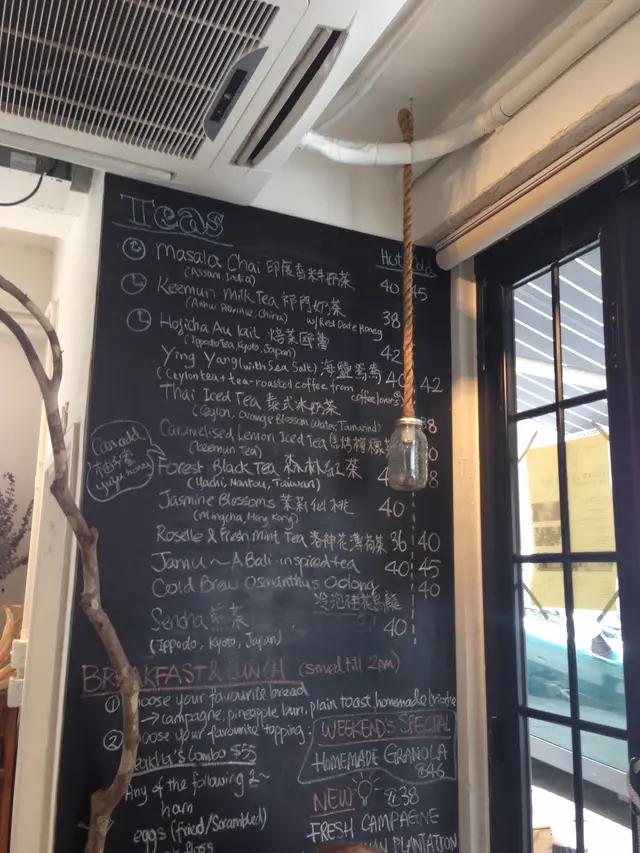 Teas
Hot Cold
Masala Chai 印度香料奶茶 40 45
(Assam, India)
Keemun Milk Tea 祁門奶茶
(Anhui Province, China) w/ Red Date Honey 38
Hojicha Au lait 焙茶歐蕾
(Ippodo tea, Kyoto, Japan) 42
Ying Yang (with Sea Salt) 海鹽鴛鴦
(Ceylon tea + tea-roasted coffee from coffee lovers) 40 42
Thai Iced Tea 泰式冰奶茶
(Ceylon, Orange Blossom Water, Tamarind) 8
Caramelised Lemon Iced Tea
(Keemun Tea)
Can add
柚子蜜
yuzu honey
Forest Black Tea 森林紅茶
(Yuchi, Nantou, Taiwan)
Jasmine Blossoms 茉莉仙桃 40
(Mingcha, Hong Kong)
Roselle & Fresh Mint Tea 洛神花薄荷茶 36 40
Jamu ~ A Bali-inspired tea 40 45
Cold Brew Osmanthus Oolong 40
冷泡桂花烏龍
Sencha 煎茶 40
(Ippodo, Kyoto, Japan)
BREAKFAST & LUNCH (served till 2pm)
① choose your favourite bread
→ campagne, pineapple bun, plain toast, homemade brioche
② choose your favourite topping:
Combo $55
Any of the following 2~
ham
eggs (fried/scrambled)
floss
WEEKEND'S SPECIAL
HOMEMADE GRANOLA
$46
NEW $38
FRESH CAMPAGNE
PLANTATION